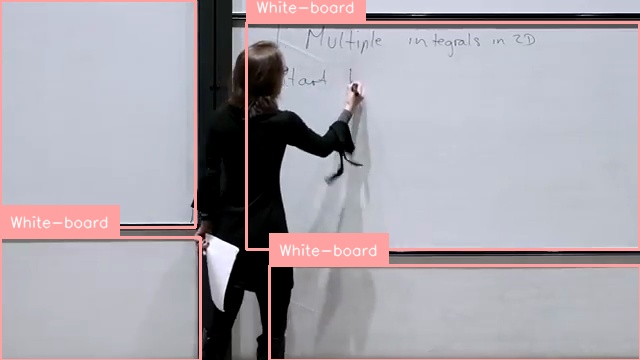 White-board
Multiple integrals in 2D
Start
White-board
White-board